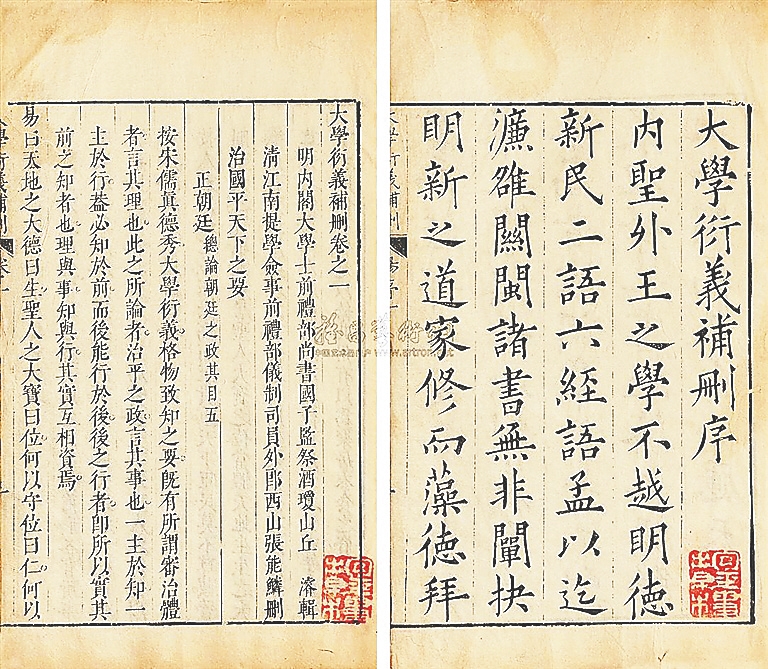 大學衍義補刪序
內聖外王之學不越明德
新民二語六經語孟以迄
濂雒關閩諸書無非闡抉
明新之道家修而藻德拜
大學衍義補刪卷之一
明內閣大學士前禮部尚書國子監祭酒瓊山丘 濬輯
清江南提學僉事前禮部儀制司員外郎西山張能鱗刪
治國平天下之要
正朝廷 總論朝廷之政其目五
按宋儒眞德秀大學衍義格物致知之要旣有所謂審治體
者言其理也此之所論者治平之政言其事也一主於知一
主於行葢必知於前而後能行於後後之行者卽所以實其
前之知者也理與事知與行其實互相資焉
易曰天地之大德曰生聖人之大寶曰位何以守位曰仁何以